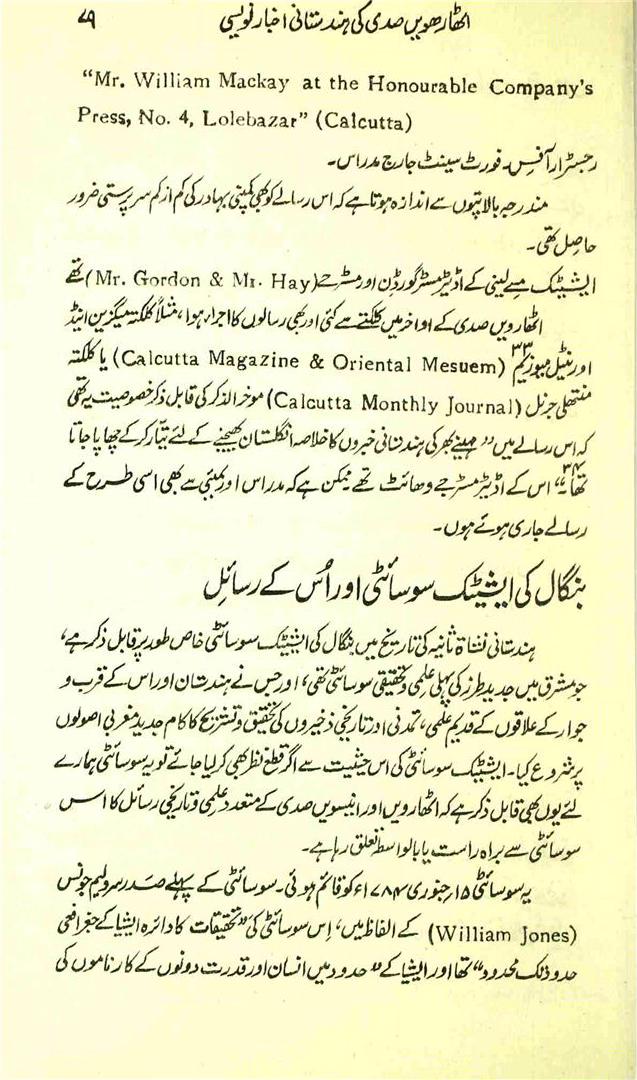 اٹھارھویں صدی کی ہندستانی اخبار نویسی ۷۹
“Mr. William Mackay at the Honourable Company’s
Press, No. 4, Lolebazar” (Calcutta)
رجسٹرار آفس۔ فورٹ سینٹ جارج مدراس۔
مندرجہ بالا پتوں سے اندازہ ہوتا ہے کہ اس رسالے کو بھی کمپنی بہادر کی کم از کم سرپرستی ضرور
حاصل تھی۔
ایشیٹک مسے لینی کے اڈیٹر مسٹر گورڈن اور مسٹر ہے (Mr. Gordon & Mr. Hay) تھے
اٹھارویں صدی کے اواخر میں کلکتے سے کئی اور بھی رسالوں کا اجراء ہوا، مثلاً کلکتہ میگزین اینڈ
اورنٹیل میوزیم ۳۳ (Calcutta Magazine & Oriental Mesuem) یا کلکتہ
منتھلی جرنل (Calcutta Monthly Journal) موخرالذکر کی قابل ذکر خصوصیت یہ تھی
کہ اس رسالے میں ”مہینے بھر کی ہندستانی خبروں کا خلاصہ انگلستان بھیجنے کے لئے تیار کر کے چھاپا جاتا
تھا۔“ ۳۴ اس کے اڈیٹر مسٹر جے وھائٹ تھے ممکن ہے کہ مدراس اور بمبئی سے بھی اسی طرح کے
رسالے جاری ہوئے ہوں۔
بنگال کی ایشیٹک سوسائٹی اور اُس کے رسائل
ہندستانی نشاۃ ثانیہ کی تاریخ میں بنگال کی ایشیٹک سوسائٹی خاص طور پر قابل ذکر ہے،
جو مشرق میں جدید طرز کی پہلی علمی و تحقیقی سوسائٹی تھی، اور جس نے ہندستان اور اس کے قرب و
جوار کے علاقوں کے قدیم علمی، تمدنی اور تاریخی ذخیروں کی تحقیق و تشریح کا کام جدید مغربی اصولوں
پر شروع کیا۔ ایشیٹک سوسائٹی کی اس حیثیت سے اگر قطع نظر بھی کر لیا جائے تو یہ سوسائٹی ہمارے
لئے یوں بھی قابل ذکر ہے کہ اٹھارویں اور انیسویں صدی کے متعدد علمی و تاریخی رسائل کا اس
سوسائٹی سے براہ راست یا بالواسطہ تعلق رہا ہے۔
یہ سوسائٹی ۱۵ر جنوری ۱۷۸۴ء کو قائم ہوئی۔ سوسائٹی کے پہلے صدر سر ولیم جونس
(William Jones) کے الفاظ میں، اِس سوسائٹی کی ”تحقیقات کا دائرہ ایشیا کے جغرافی
حدود تک محدود“ تھا اور ایشیا کے ”حدود میں انسان اور قدرت دونوں کے کارناموں کی